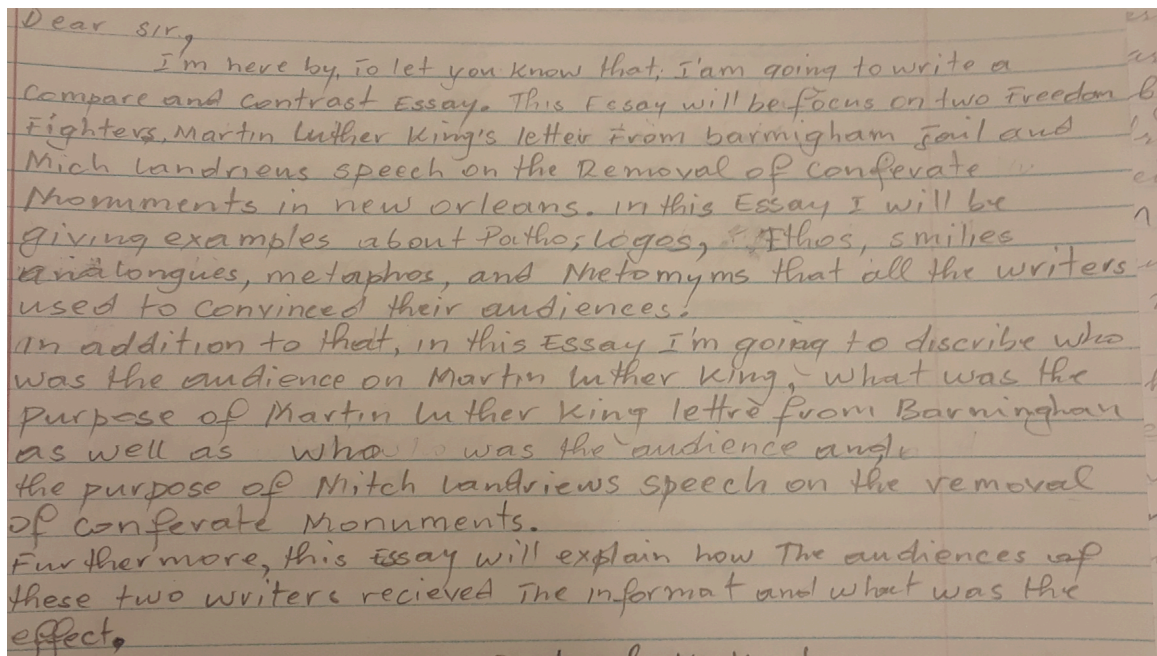 Dear Sir,
I'm here by, To let you know that, I'am going to write a
Compare and Contrast Essay. This Essay will be focus on two Freedom
Fighters, Martin Luther King's letteir From barmigham Jail and
Mich Landrieus speech on the Removal of Confevate
Monmments in new orleans. in this Essay I will be
giving examples about Patho, logos, Ethos, smilies
analongues, metaphos, and Metomyms that all the writers
used to convinced their audiences.
in addition to that, in this Essay I'm going to discribe who
was the audience on Martin luther King, what was the
purpose of Martin luther King lettre from Barninghan
as well as who was the audience and
the purpose of Mitch Landriews speech on the removal
of confevate Monuments.
Furthermore, this Essay will explain how The audiences of
these two writers recieved The informat and what was the
effect.